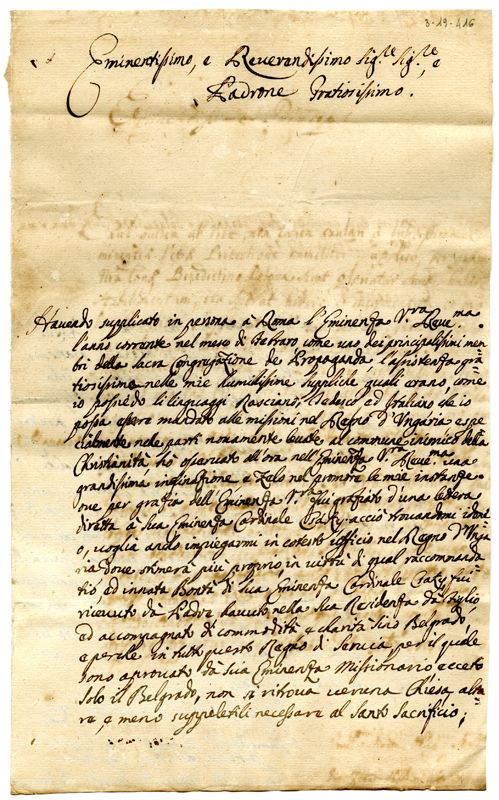 3-19-416
Eminentissimo, e Reverendissimo Sig.re Sig.re, e
Padrone Gratiosissimo.
Havendo supplicato in persona à Roma l'Eminenza V.ra Reve.ma
l'anno corrante nel mese di Febraro come uno dei principalissimi mem
bri della Sacra Congregatione de Propaganda, l'assistenza gra=
tiosissima nelle mie humilissime suppliche quali erano, come
io possiedo li linguaggi Rasciano, Tedesco ed Italiano che io
possa essere mandato alle missioni nel Regno d'Ungaria e spe
cialmente nele parti novamente levate al commune inimico della
Christianità, hò osservato all'ora nell'Eminenza V.ra Reve.ma una
grandissima inclinatione e Zelo nel promovere le mie instanze.
one per grafia dell'Eminenza V.ra fui grafiato d'una letera
diretta à Sua Eminenza Cardinale Csaky acciò trovandomi idoni
o, voglia ancho impiegarmi in cotesto officio nel Regno d'Unga
ria dove stimerà più proprio, in virtù di qual raccomanda
tió ad innata Bontà di Sua Eminenza Cardinale Csaky fui
ricevuto da Padre havuto nella Sua Residenza da
ed accompagnato di commodità e charità sino Belgrado
e perche in tutto questo Regno di Servia per il quale
sono aprovato dà Sua Eminenza Missionario ecceto
Solo il Belgrado, non si ritrova veruna Chiesa, alta
re, e meno suppeletili necessare al Santo Sacrificio;